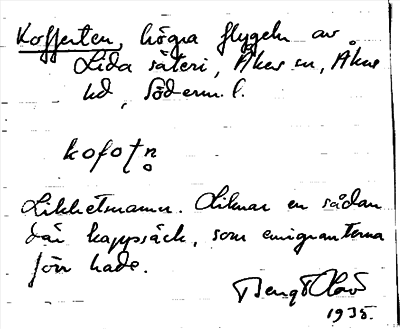 Kofferten, högra flygeln av
Lida säteri, Åkers sn, Åkers
hd, Söderm. l.
kofoṭn̥
Likhetsnamn. Liknar en sådan
där kappsäck, som emigranterna
förr hade.
Bengt
1935.